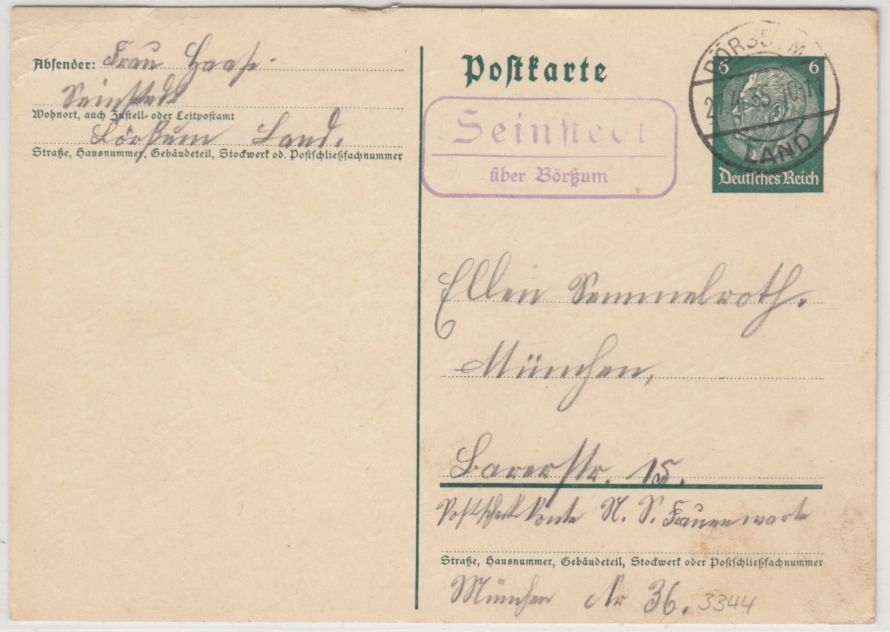 Absender: Frau Haase.
Seinstedt
Wohnort, auch Zustell- oder Leitpostamt
Börßum Land.
Straße, Hausnummer, Gebäudeteil, Stockwerk od. Postschließfachnummer
Postkarte
Seinstedt
über Börßum
BÖRSSUM
LAND
6 6
Deutsches Reich
Ellen Semmelroth.
München,
Barerstr. 15.
Postscheckkonto N. S. Frauenwarte
Straße, Hausnummer, Gebäudeteil, Stockwerk oder Postschließfachnummer
München Nr 36.
3344